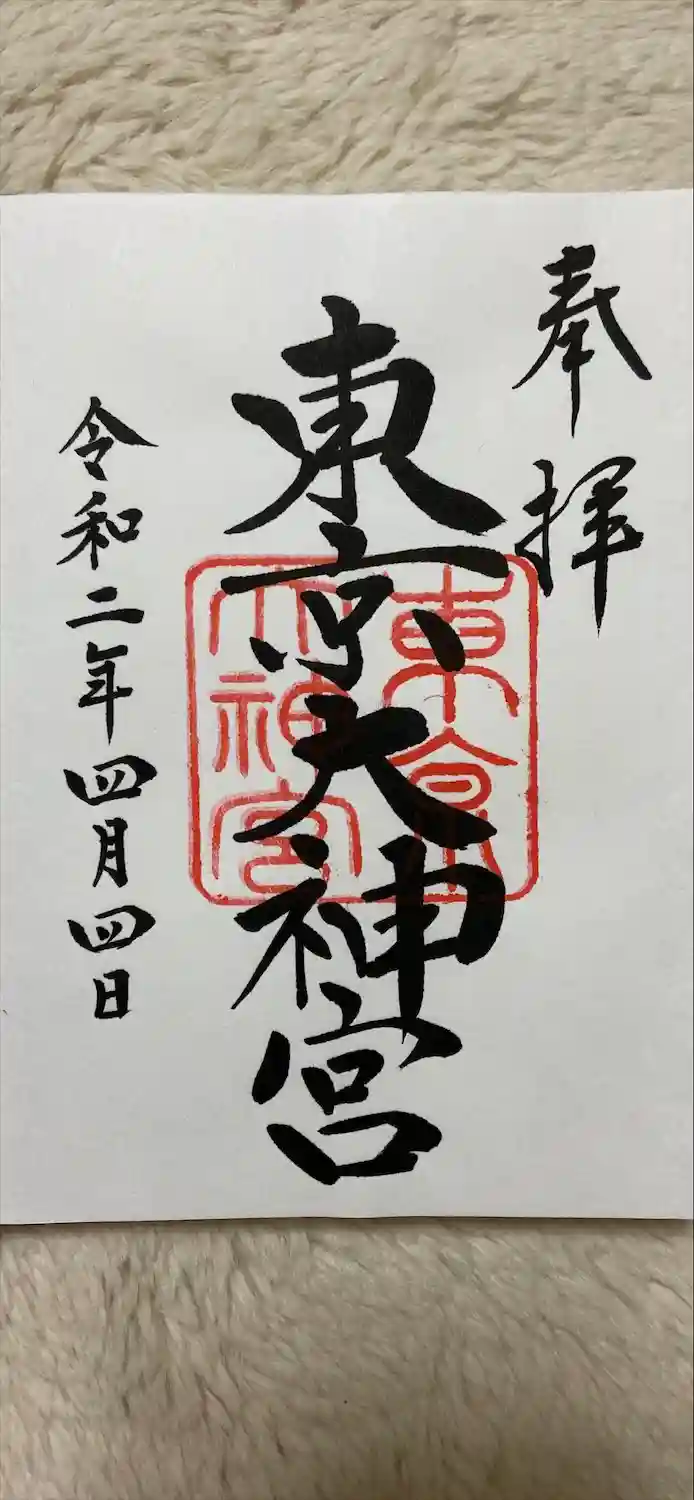 奉拝
東京大神宮
東京
大神宮
令和二年四月四日